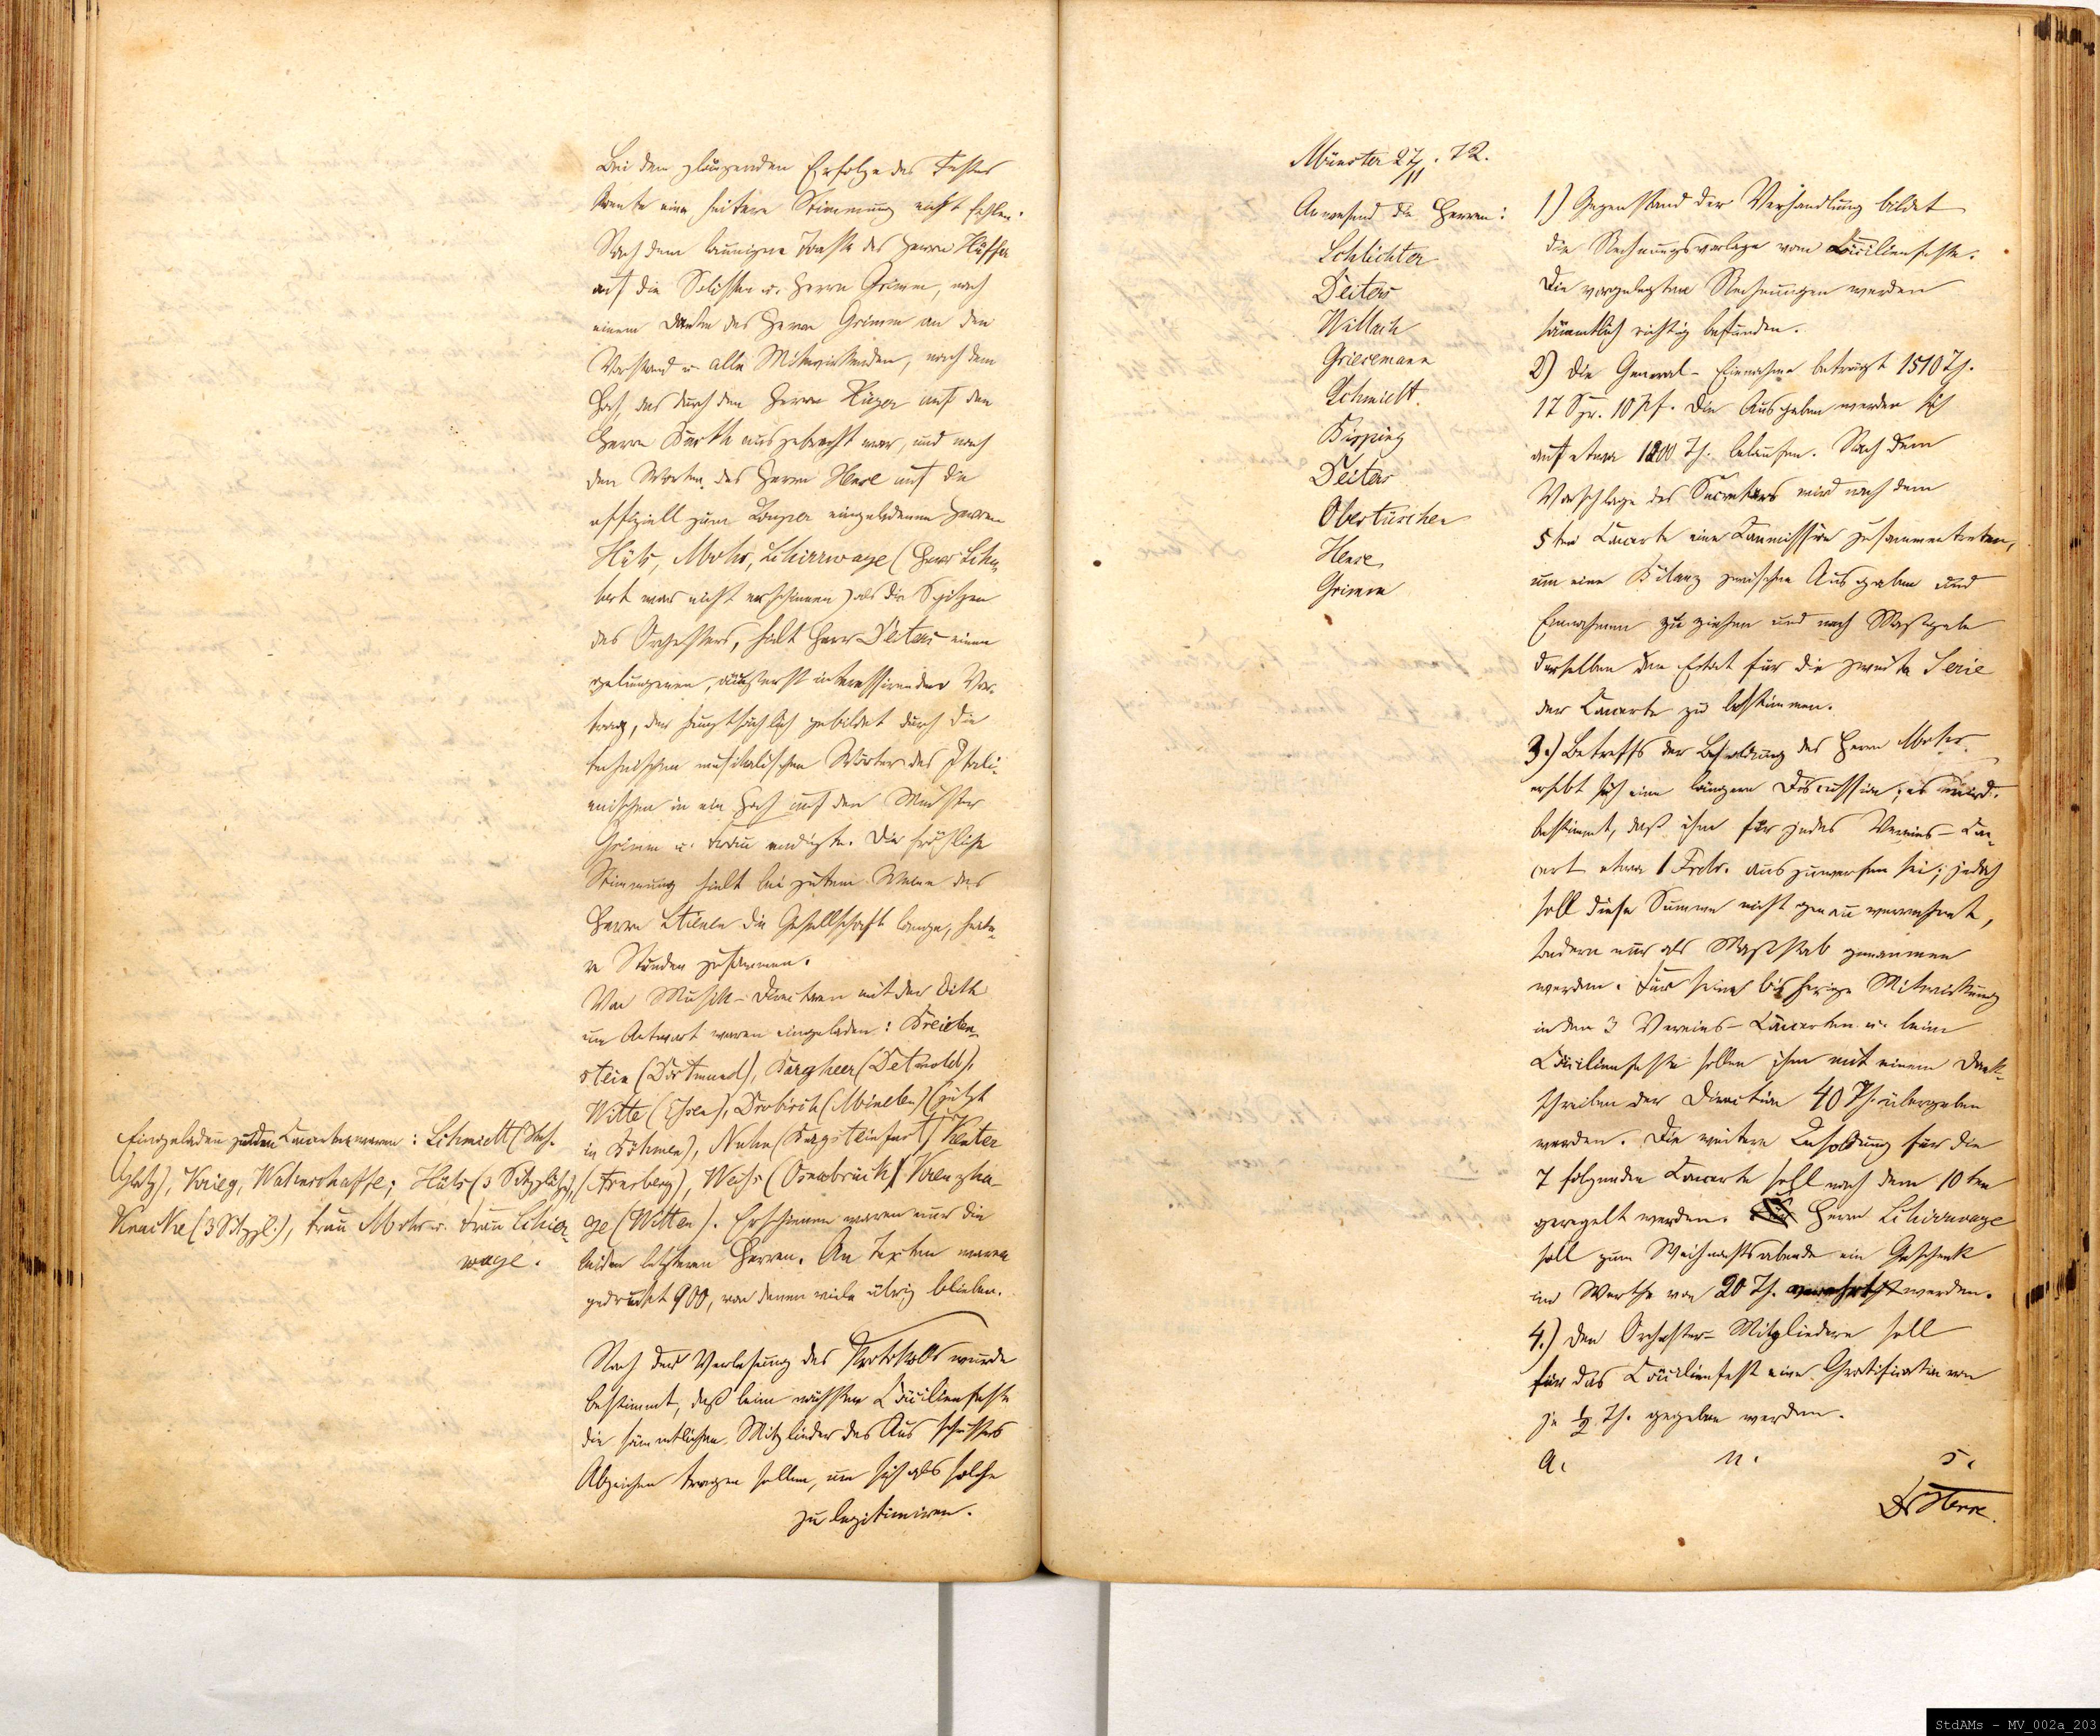 Bei dem glänzenden Erfolge des Festes
konnte eine heitere Stimmung nicht fehlen.
Nach dem launigen Toaste des Herrn Hüffer
auf die Solisten u. Herrn Grimm, nach
einem Danke des Herrn Grimm an den
Vorstand u. alle Mitwirkenden, nach dem
Hoch, das durch den Herrn auf den
Herrn Barth ausgebracht war, und nach
den Worten des Herrn Hense auf die
offiziell zum Souper eingeladenen Herren
Hüls, Mohr, Schirrwage (Herr Schu-
bert war nicht erschienen) als die Spitzen
des Orchesters, hielt Herr Deiters einen
gelungenen, äußerst interessirenden Vor-
trag, der hauptsächlich gebildet durch die
technischen musikalischen Wörter des Itali-
enischen in ein Hoch auf den Meister
Grimm u. Frau endigte. Die fröhliche
Stimmung hielt bei gutem Weine des
Herrn Stienen die Gesellschaft lange, heite-
re Stunden zusammen.
Von Musik-Directoren mit der Bitte
um Antwort waren eingeladen: Breiden-
stein (Dortmund), Bargheer (Detmold),
Witte (Essen), Drobisch (Minden) (jetzt
in Böhmen), Nuhn (Burgsteinfurt)
(Arnsberg), Weiss (Osnabrück) Krenzha-
ge (Witten). Erschienen waren nur die
beiden letzteren Herren. An Texten waren
gedruckt 900, von denen viele übrig blieben.
Eingeladen zu den Concerten waren: Schmidt (Steh-
platz), Krieg, Watenschaffe; Hüls (3 Sitzplätze),
Knacke (3 Sitzpl.), Frau Mohr u. Frau Schirr-
wage.
Nach der Verlesung des Protokolls wurde
bestimmt, daß beim nächsten Cäcilienfeste
die sämmtlichen Mitglieder des Ausschusses
Abzeichen tragen sollen, um sich als solche
zu legitimiren.
Münster 27/11. 72.
Anwesend die Herren:
Schlichter
Deiters
Willach
Griesemann
Schmidt.
Bisping
Deiters
Obertüschen
Hense
Grimm
1) Gegenstand der Verhandlung bildet
die Rechnungsvorlage vom Cäcilienfeste.
Die vorgelegten Rechnungen werden
sämmtlich richtig befunden.
2) Die General-Einnahme beträgt 1510 Th.
17 Sgr. 10 Pf. Die Ausgaben werden sich
auf etwa 1200 Th. belaufen. Nach dem
Vorschlage des Secretärs wird nach dem
5ten Concerte eine Commission zusammentreten,
um eine Bilanz zwischen Ausgaben und
Einnahmen zu ziehen und nach Maßgabe
derselben den Etat für die zweite Serie
der Concerte zu bestimmen.
3.) Betreffs der Besoldung des Herrn Mohr
erhebt sich eine längere Discussion; es wird
bestimmt, daß ihm für jedes Vereins-Con-
cert etwa 1 Frdr. auszuwerfen sei; jedoch
soll diese Summe nicht genau verrechnet,
sondern nur als Maßstab genommen
werden. Für seine bisherige Mitwirkung
in den 3 Vereins-Concerten u. beim
Cäcilienfeste sollen ihm mit einem Dank-
schreiben der Direction 40 Th. übergeben
werden. Die weitere Besoldung für die
7 folgenden Concerte soll nach dem 10ten
geregelt werden. Herrn Schirrwage
soll zum Weihnachtsabende ein Geschenk
im Werthe von 20 Th. werden.
4.) Den Orchester-Mitgliedern soll
für das Cäcilienfest eine Gratification von
je ½ Th. gegeben werden.
a. u. s.
Dr Hense.